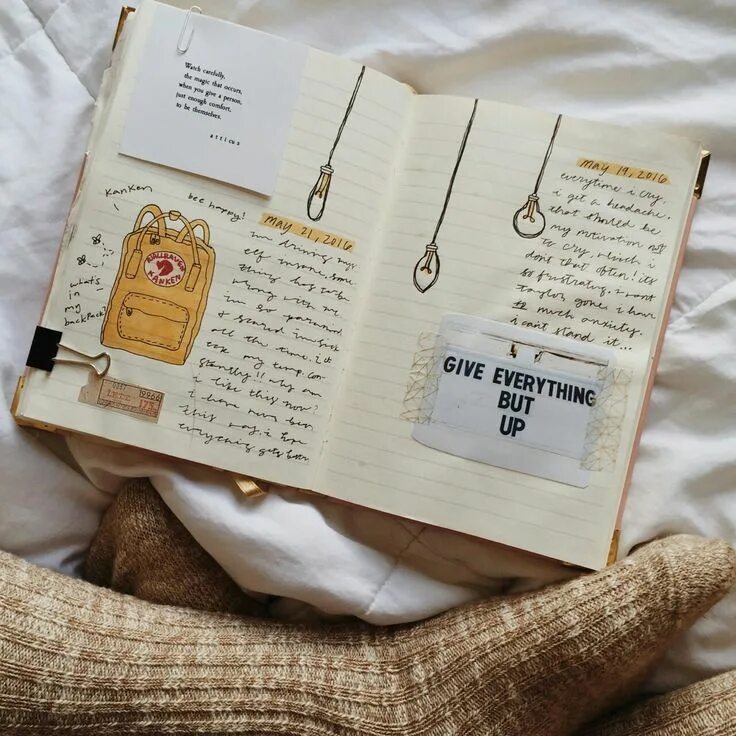 Watch carefully,
the magic that occurs,
when you give a person,
just enough comfort,
to be themselves.
atticus
Kanken
bee happy!
FJALLRAVEN
KANKEN
what's
in
my
backpack?
175
MAY 21, 2016
im driving mys
elf insane, some
thing has to be
wrong with me
im so paranoid
& scared im sick
all the time. i ch
eck my temp. con
stantly!! why am
i like this now?
i have never been
this way. i hope
everything gets better
MAY 19, 2016
everytime i cry,
i get a headache.
that should be
my motivation not
to cry, which i
dont that often! its
so frustrating. i want
taylor gone. i have
so much anxiety.
i cant stand it...
GIVE EVERYTHING
BUT
UP